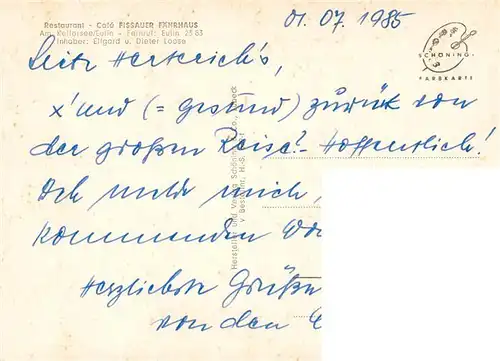 Restaurant - Café FISSAUER FÄHRHAUS
Am Kellersee/Eutin - Fernruf: Eutin 23 63
Inhaber: Elfgard u. Dieter Loose
01.07.1985
SCHÖNING-
FARBKARTE
Herteich's,
x'und (= gesund) zurück von
der großen Reise? - Hoffentlich!
Ich melde mich,
kommenden
Herzlichste Grüße
von den
Hersteller und Verlag Schöning & Co., Lübeck
v Bestellnr. H.-S.